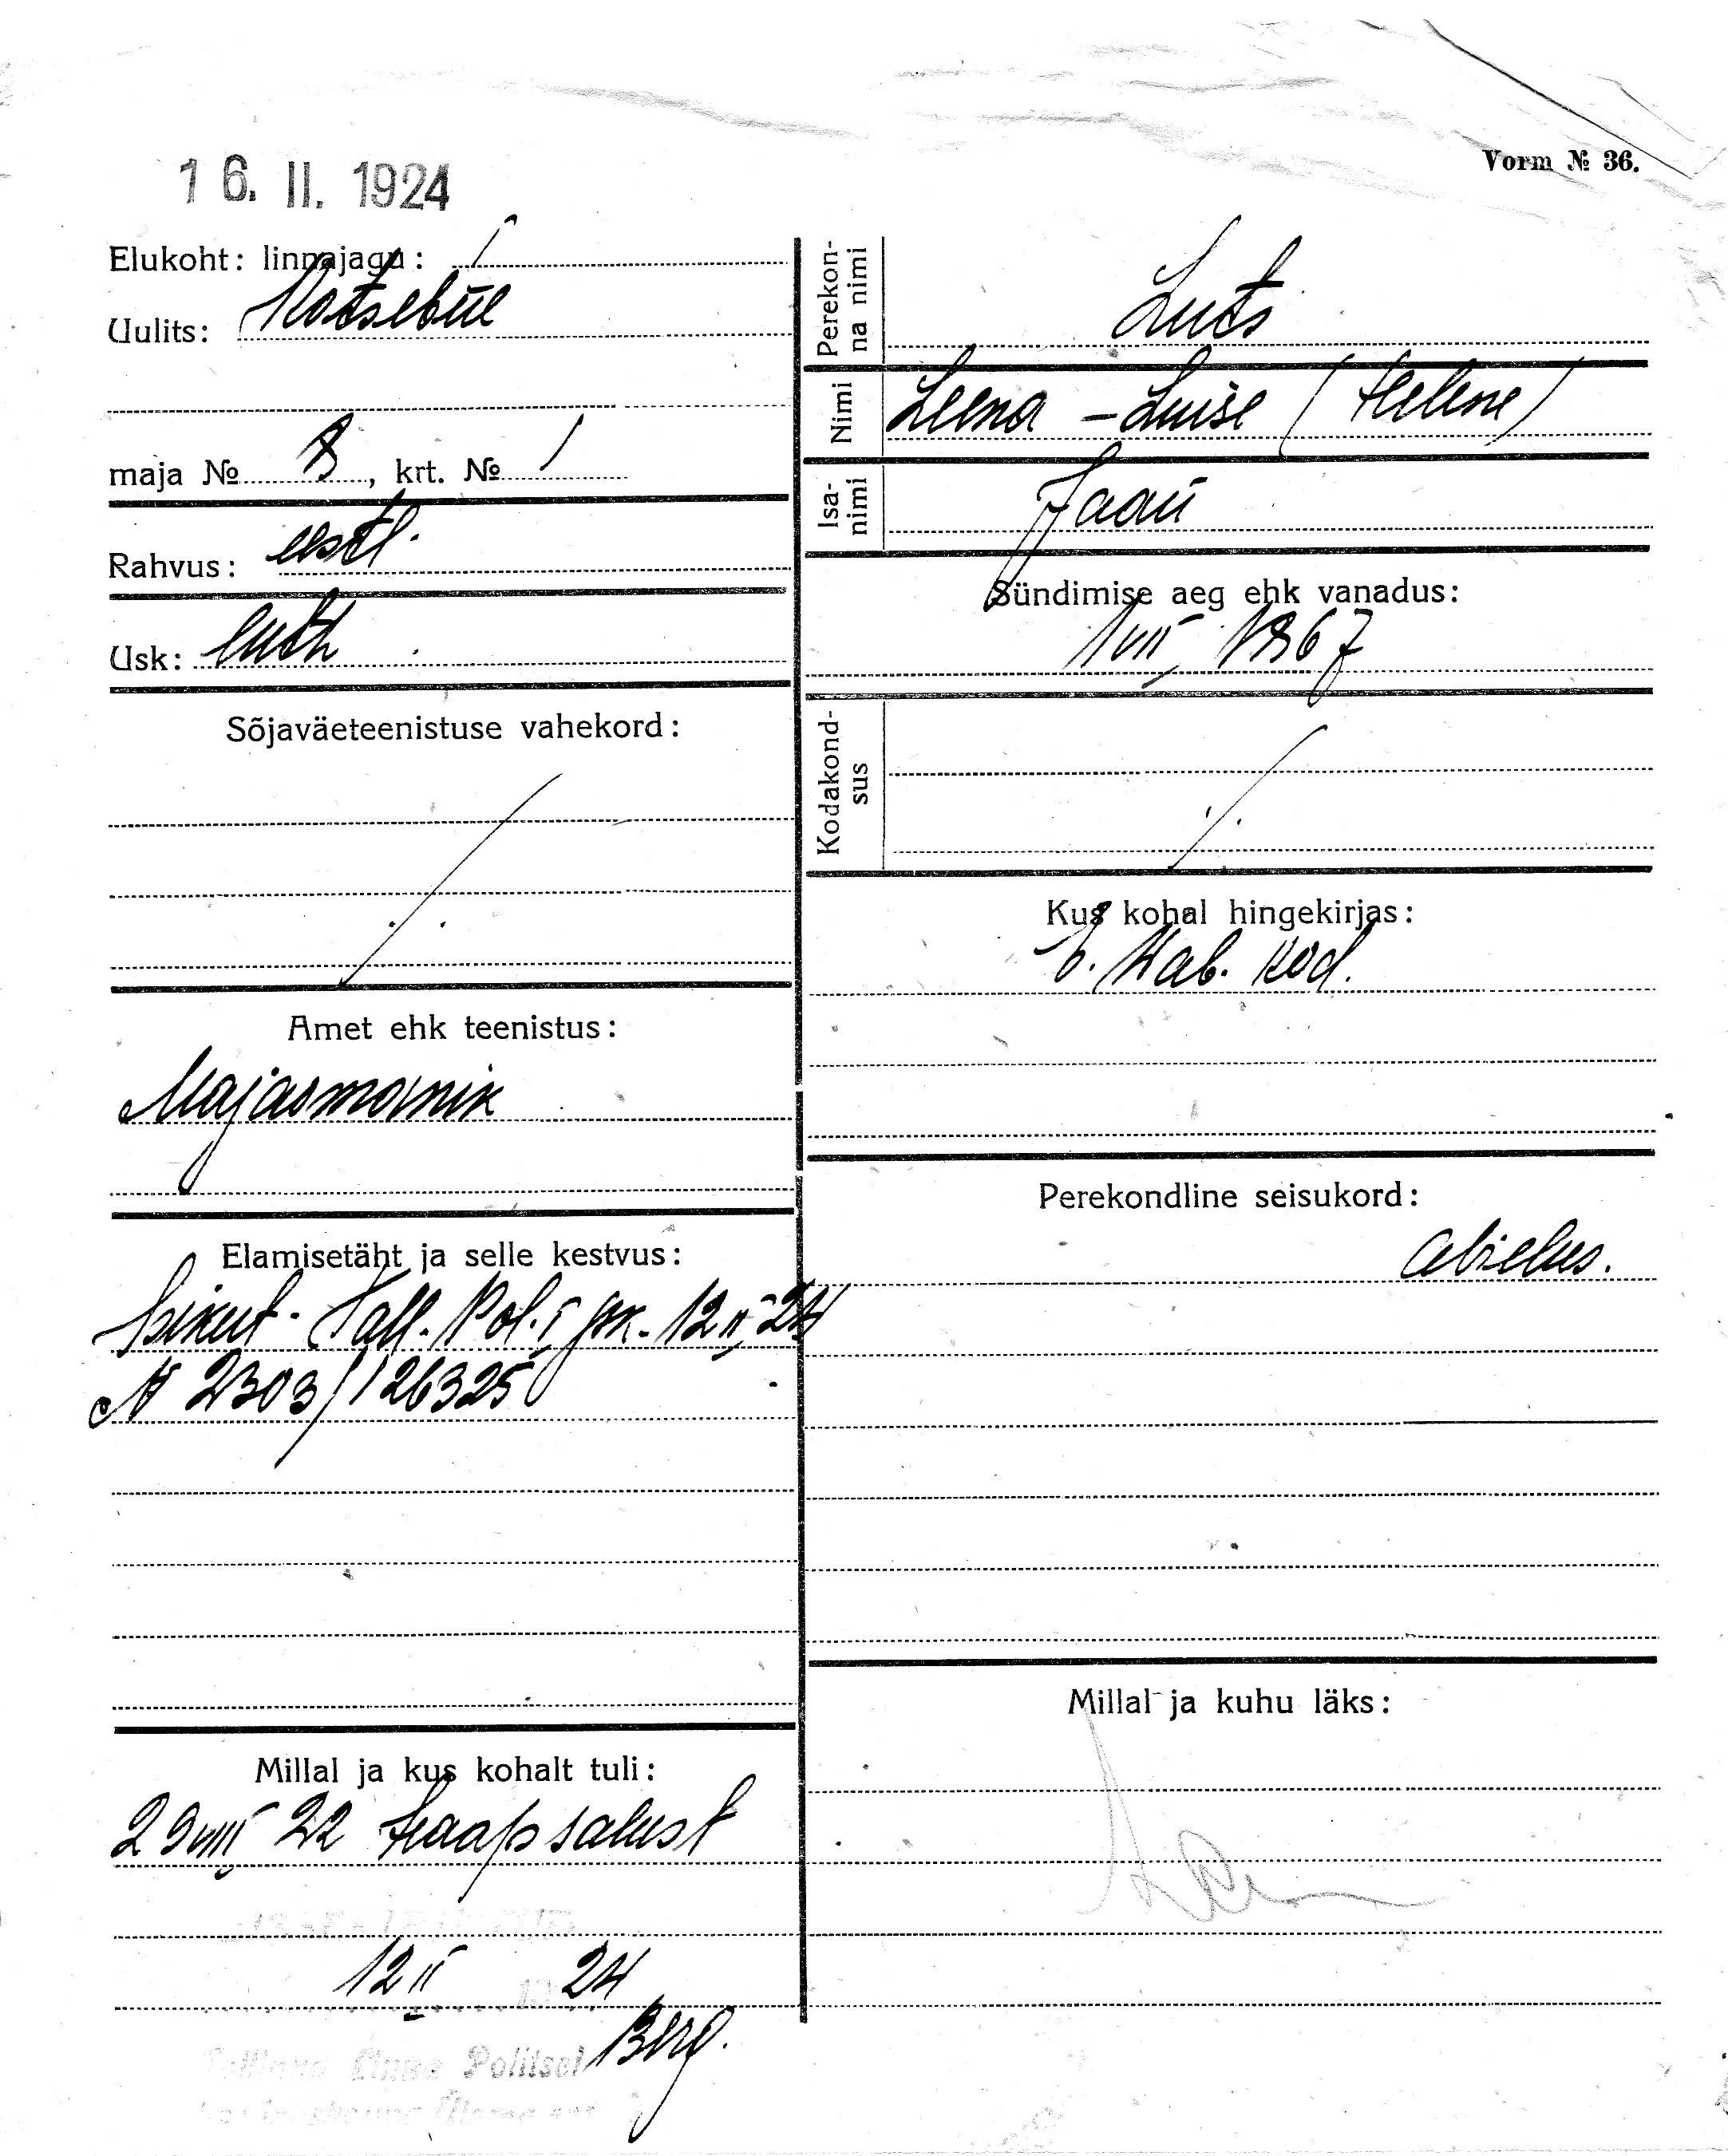 16. II. 1924
Vorm № 36.
Elukoht: linnajagu: I
Uulits: Kotsebüe
maja № 8, krt. № 1
Rahvus: eestl.
Usk: luth
Sõjaväeteenistuse vahekord:
./.
Amet ehk teenistus:
Majaomanik
Elamisetäht ja selle kestvus:
Isikut. Tall. Pol. I jsk. 12 II 24
N 2303/126325
Millal ja kus kohalt tuli:
29 VIII 22 Haapsalust
12 II 24
Berg.
Tallinna Linna Politsei
Perekonna nimi Luts
Nimi Leena-Luise (Helene)
Isanimi Jaan
Sündimise aeg ehk vanadus:
1 VII 1867
Kodakondsus ./.
Kus kohal hingekirjas:
E. Wab. kod.
Perekondline seisukord:
abielus.
Millal ja kuhu läks: